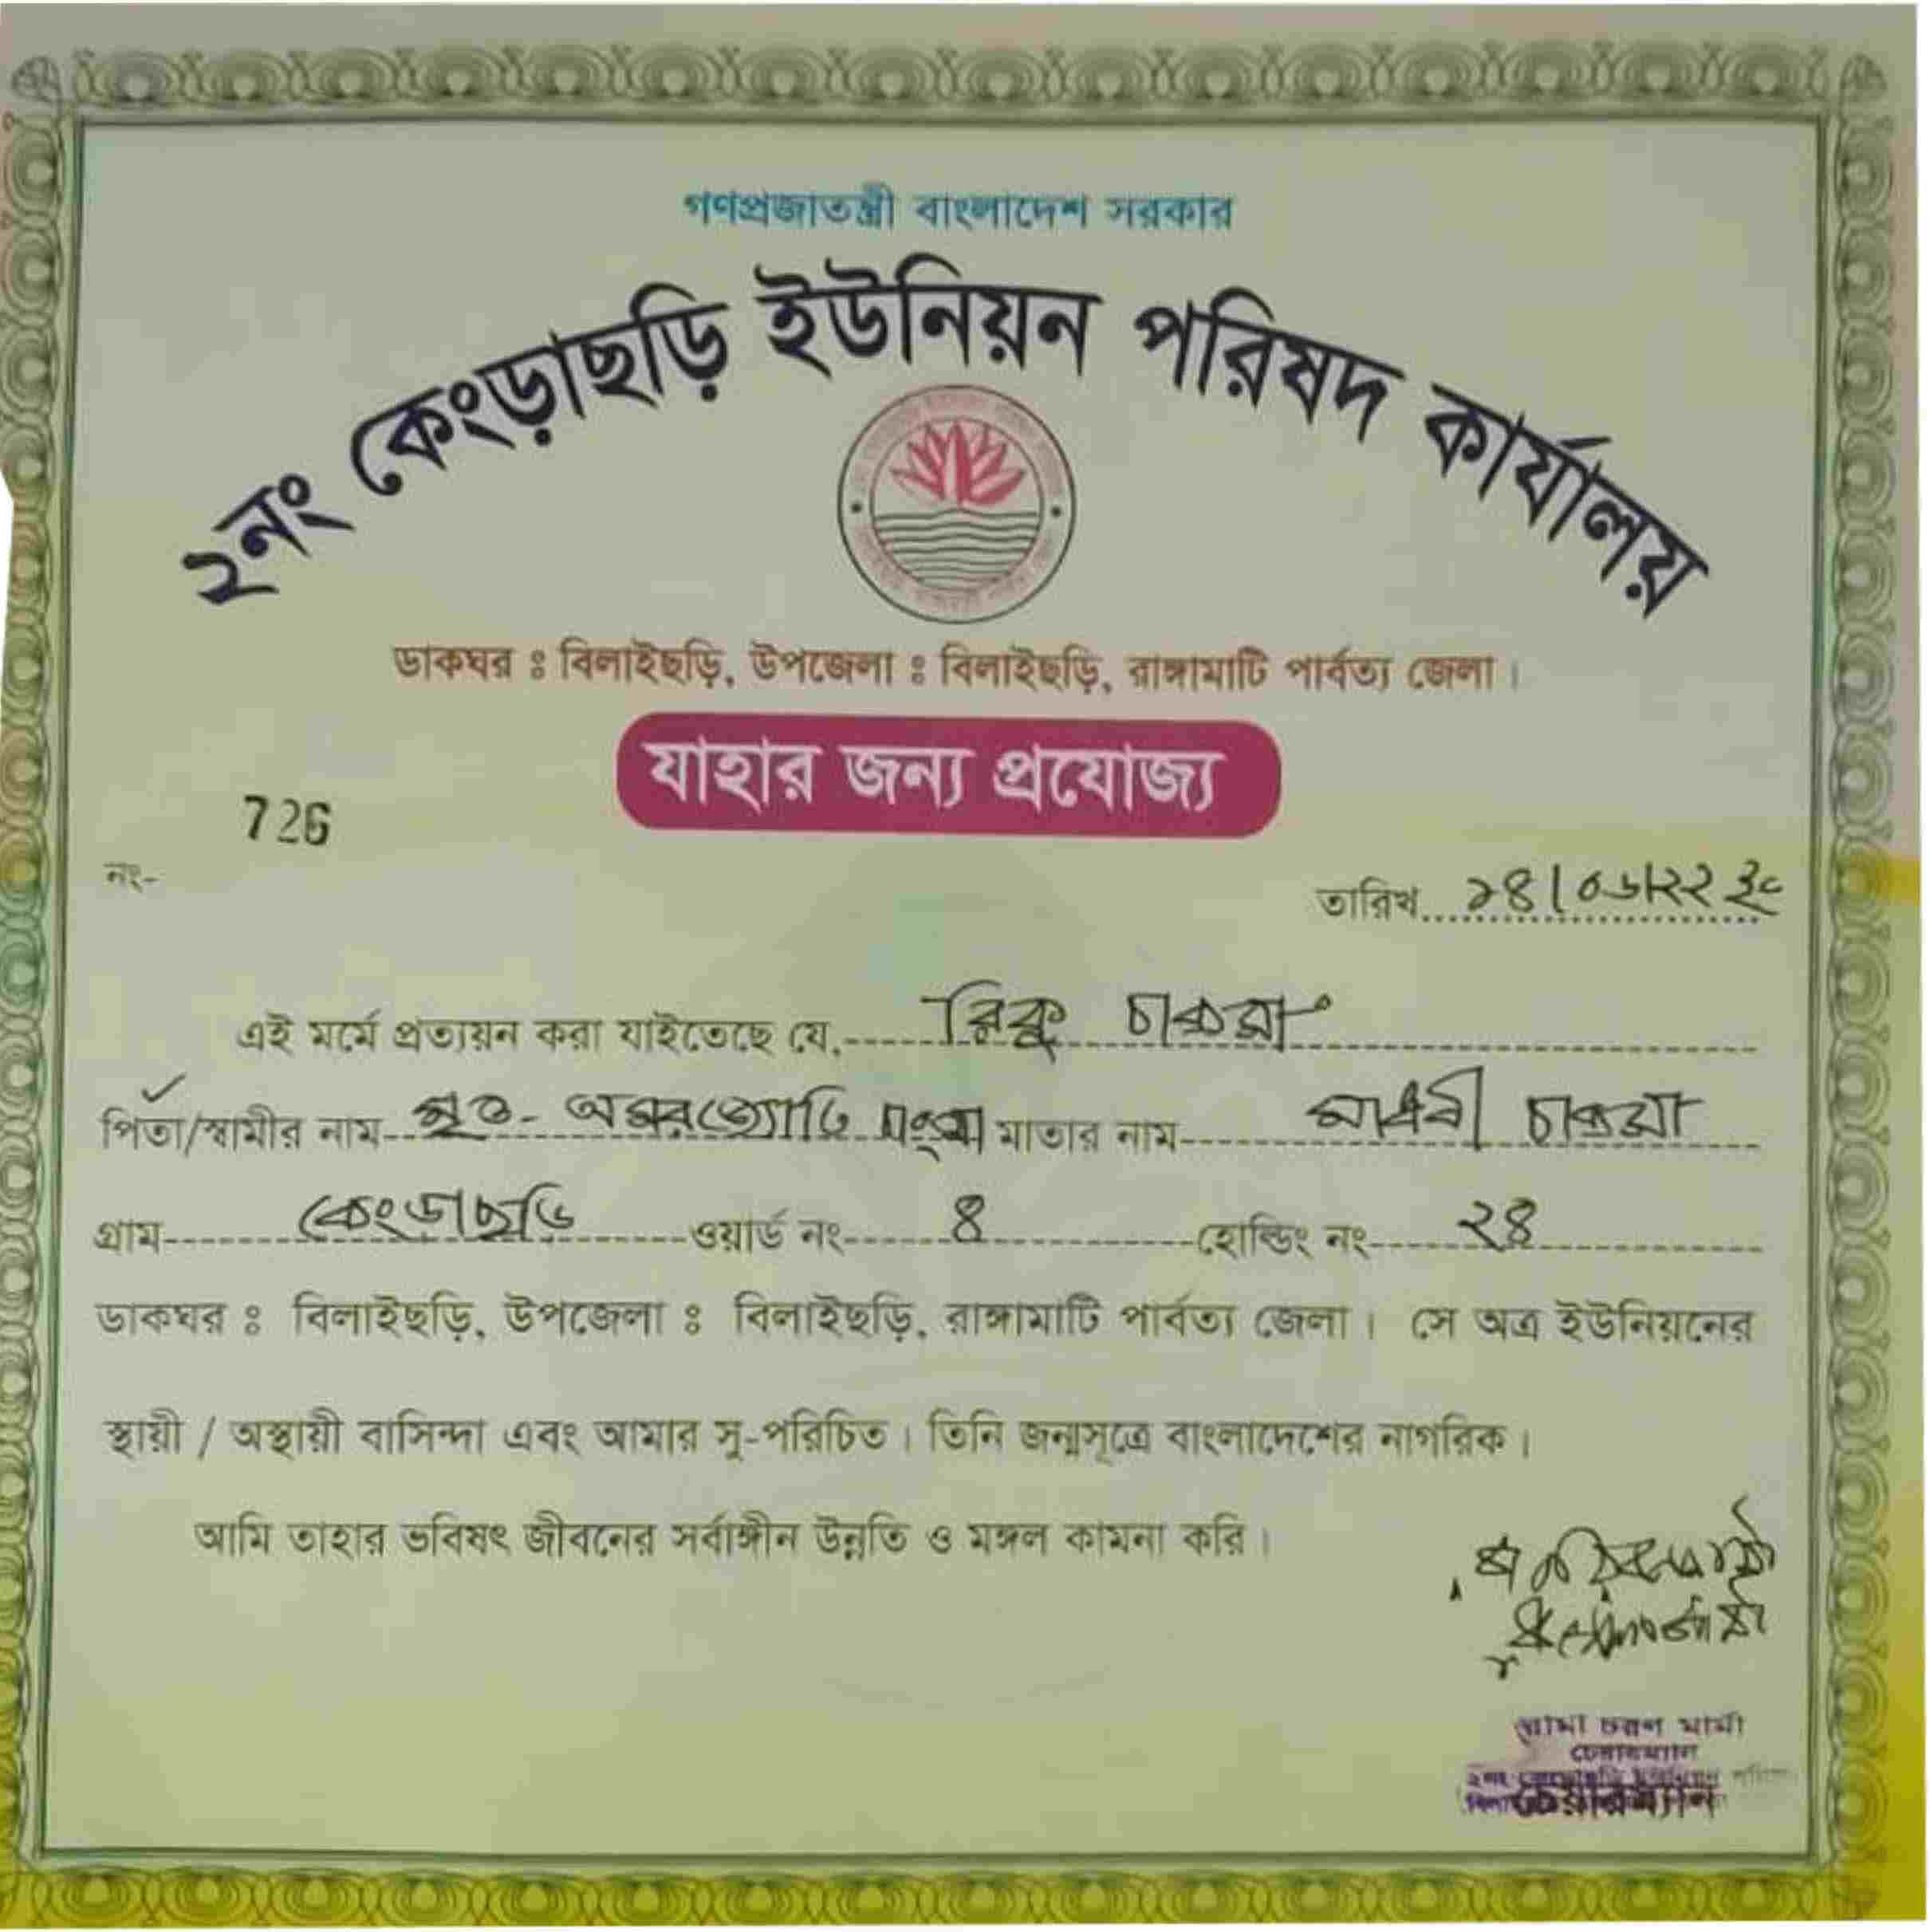 গণপ্রজাতন্ত্রী বাংলাদেশ সরকার
২নং কেংড়াছড়ি ইউনিয়ন পরিষদ কার্যালয়
ডাকঘর ঃ বিলাইছড়ি, উপজেলা ঃ বিলাইছড়ি, রাঙ্গামাটি পার্বত্য জেলা।
যাহার জন্য প্রযোজ্য
726
নং-
তারিখ... ১৪/০৬/২২ ইং
এই মর্মে প্রত্যয়ন করা যাইতেছে যে, রিকু চাকমা
পিতা/স্বামীর নাম মৃত- অমরজ্যোতি চাকমা মাতার নাম মাধবী চাকমা
গ্রাম কেংড়াছড়ি ওয়ার্ড নং ৪ হোল্ডিং নং ২৪
ডাকঘর ঃ বিলাইছড়ি, উপজেলা ঃ বিলাইছড়ি, রাঙ্গামাটি পার্বত্য জেলা। সে অত্র ইউনিয়নের
স্থায়ী / অস্থায়ী বাসিন্দা এবং আমার সু-পরিচিত। তিনি জন্মসূত্রে বাংলাদেশের নাগরিক।
আমি তাহার ভবিষৎ জীবনের সর্বাঙ্গীন উন্নতি ও মঙ্গল কামনা করি।
রামা চরণ মার্মা
চেয়ারম্যান
২নং কেংড়াছড়ি ইউনিয়ন পরিষদ
চেয়ারম্যান